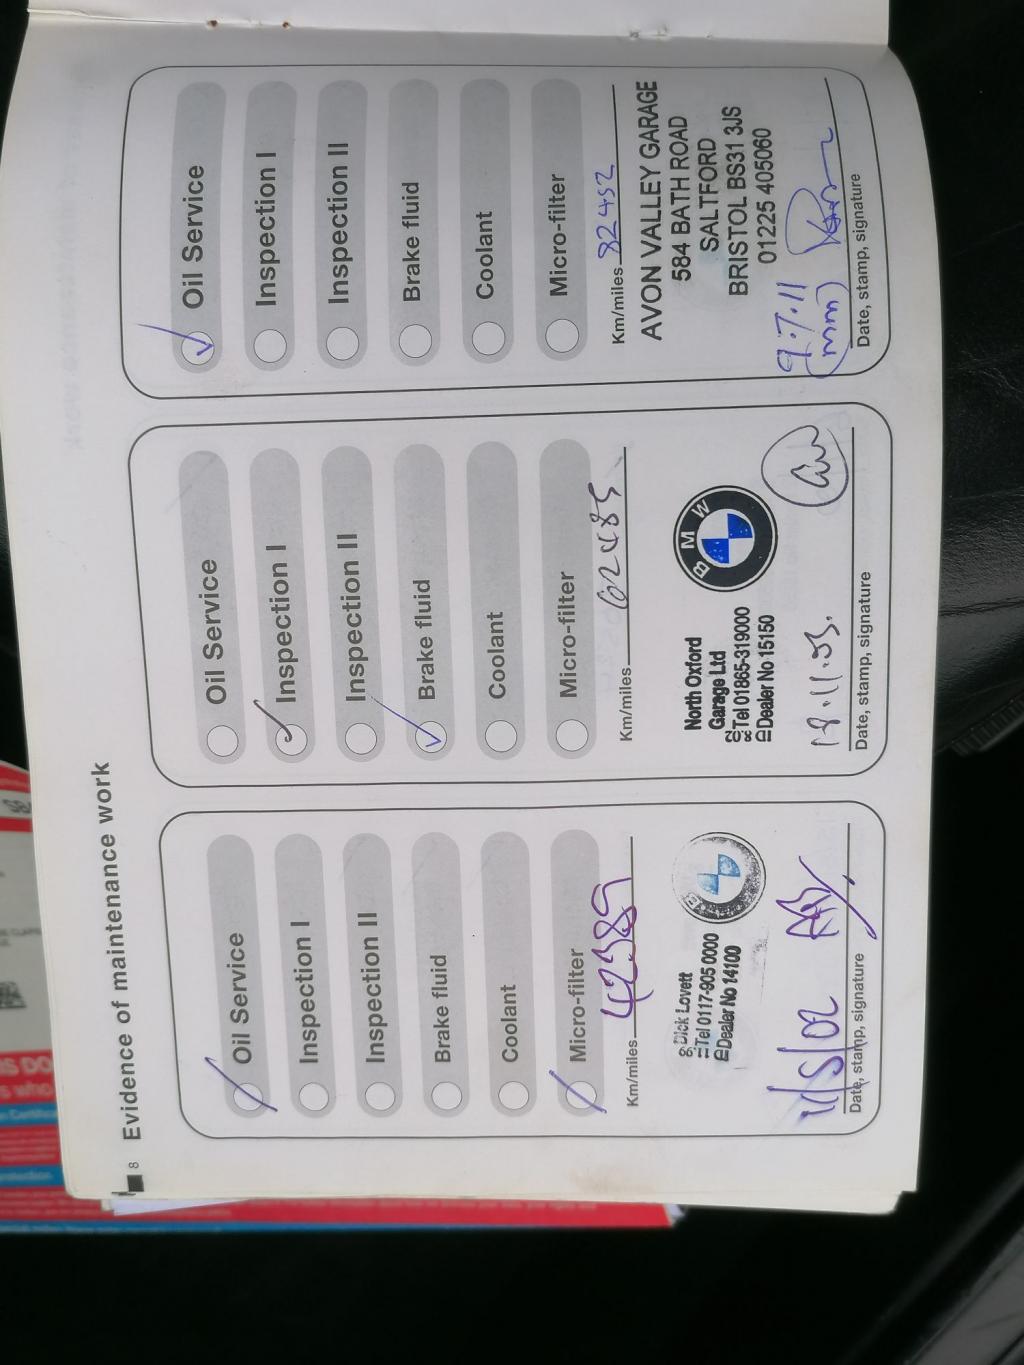 8 Evidence of maintenance work
Oil Service
Inspection I
Inspection II
Brake fluid
Coolant
Micro-filter
Km/miles 42389
Dick Lovett
Tel 0117-905 0000
Dealer No 14100
B
1/5/02
Date, stamp, signature
Oil Service
Inspection I
Inspection II
Brake fluid
Coolant
Micro-filter
Km/miles 62485
North Oxford
Garage Ltd
Tel 01865-319000
Dealer No 15150
BMW
18.11.03.
Date, stamp, signature
Oil Service
Inspection I
Inspection II
Brake fluid
Coolant
Micro-filter
Km/miles 82452
AVON VALLEY GARAGE
584 BATH ROAD
SALTFORD
BRISTOL BS31 3JS
01225 405060
9.7.11
Date, stamp, signature